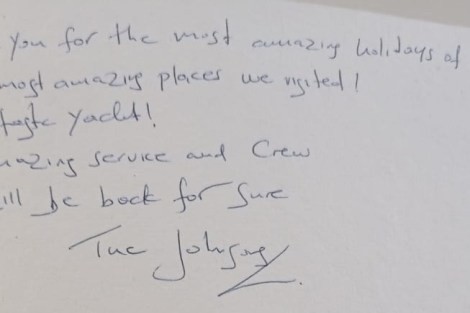 you for the most amazing holidays of
most amazing places we visited!
yacht!
amazing service and Crew
ill be back for sure
The Johnsons